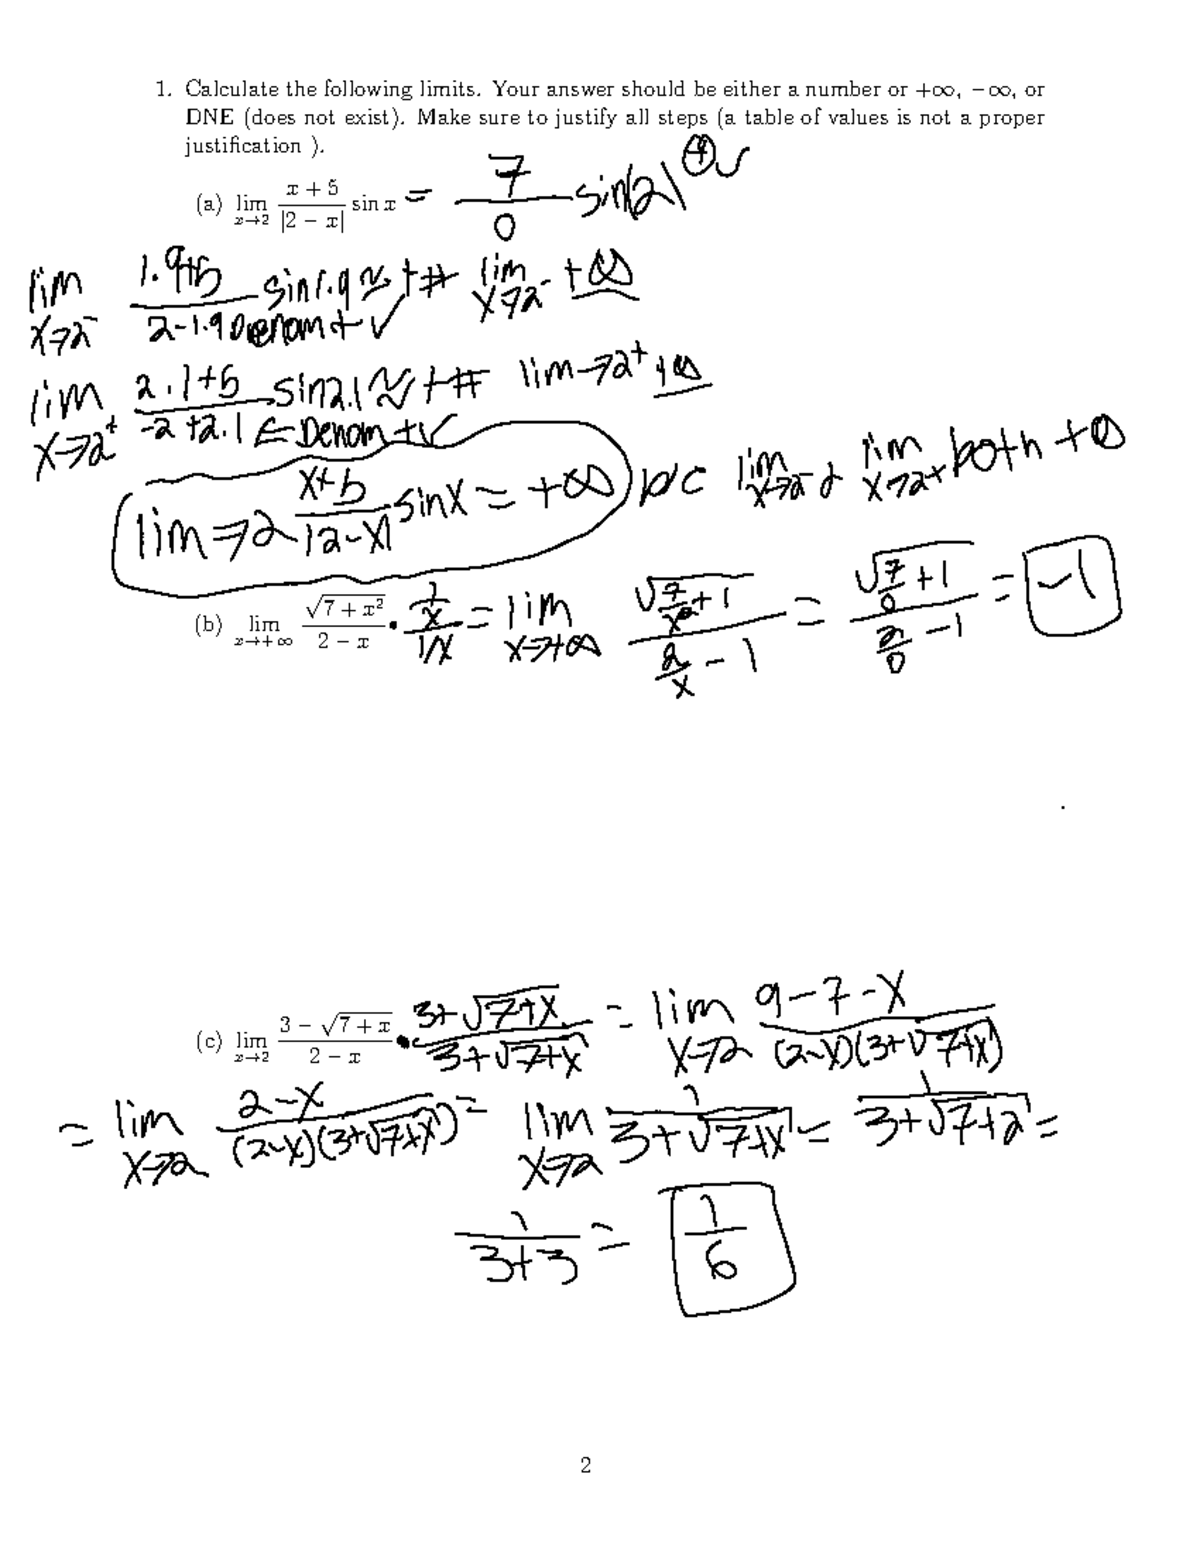 1. Calculate the following limits. Your answer should be either a number or +∞, −∞, or
DNE (does not exist). Make sure to justify all steps (a table of values is not a proper
justification ).
(a) lim x→2 (x + 5)/|2 − x| sin x = 7/0 sin(2) (+) ✓
lim x→2⁻ (1.9+5)/(2-1.9) sin 1.9 ≈ +# lim x→2⁻ +∞
Denom + ✓
lim x→2⁺ (2.1+5)/(-2+2.1) sin 2.1 ≈ +# lim→2⁺ +∞
← Denom + ✓
lim→2 (x+5)/|2-x| sin x = +∞ b/c lim x→2⁻ & lim x→2⁺ both +∞
(b) lim x→+∞ √(7 + x²)/(2 − x) · (1/x)/(1/x) = lim x→+∞ √(7/x² + 1)/(2/x - 1) = √(7/0 + 1)/(2/0 - 1) = -1
(c) lim x→2 (3 − √(7 + x))/(2 − x) · (3+√(7+x))/(3+√(7+x)) = lim x→2 (9-7-x)/((2-x)(3+√(7+x)))
= lim x→2 (2-x)/((2-x)(3+√(7+x))) = lim x→2 1/(3+√(7+x)) = 1/(3+√(7+2)) =
1/(3+3) = 1/6
2